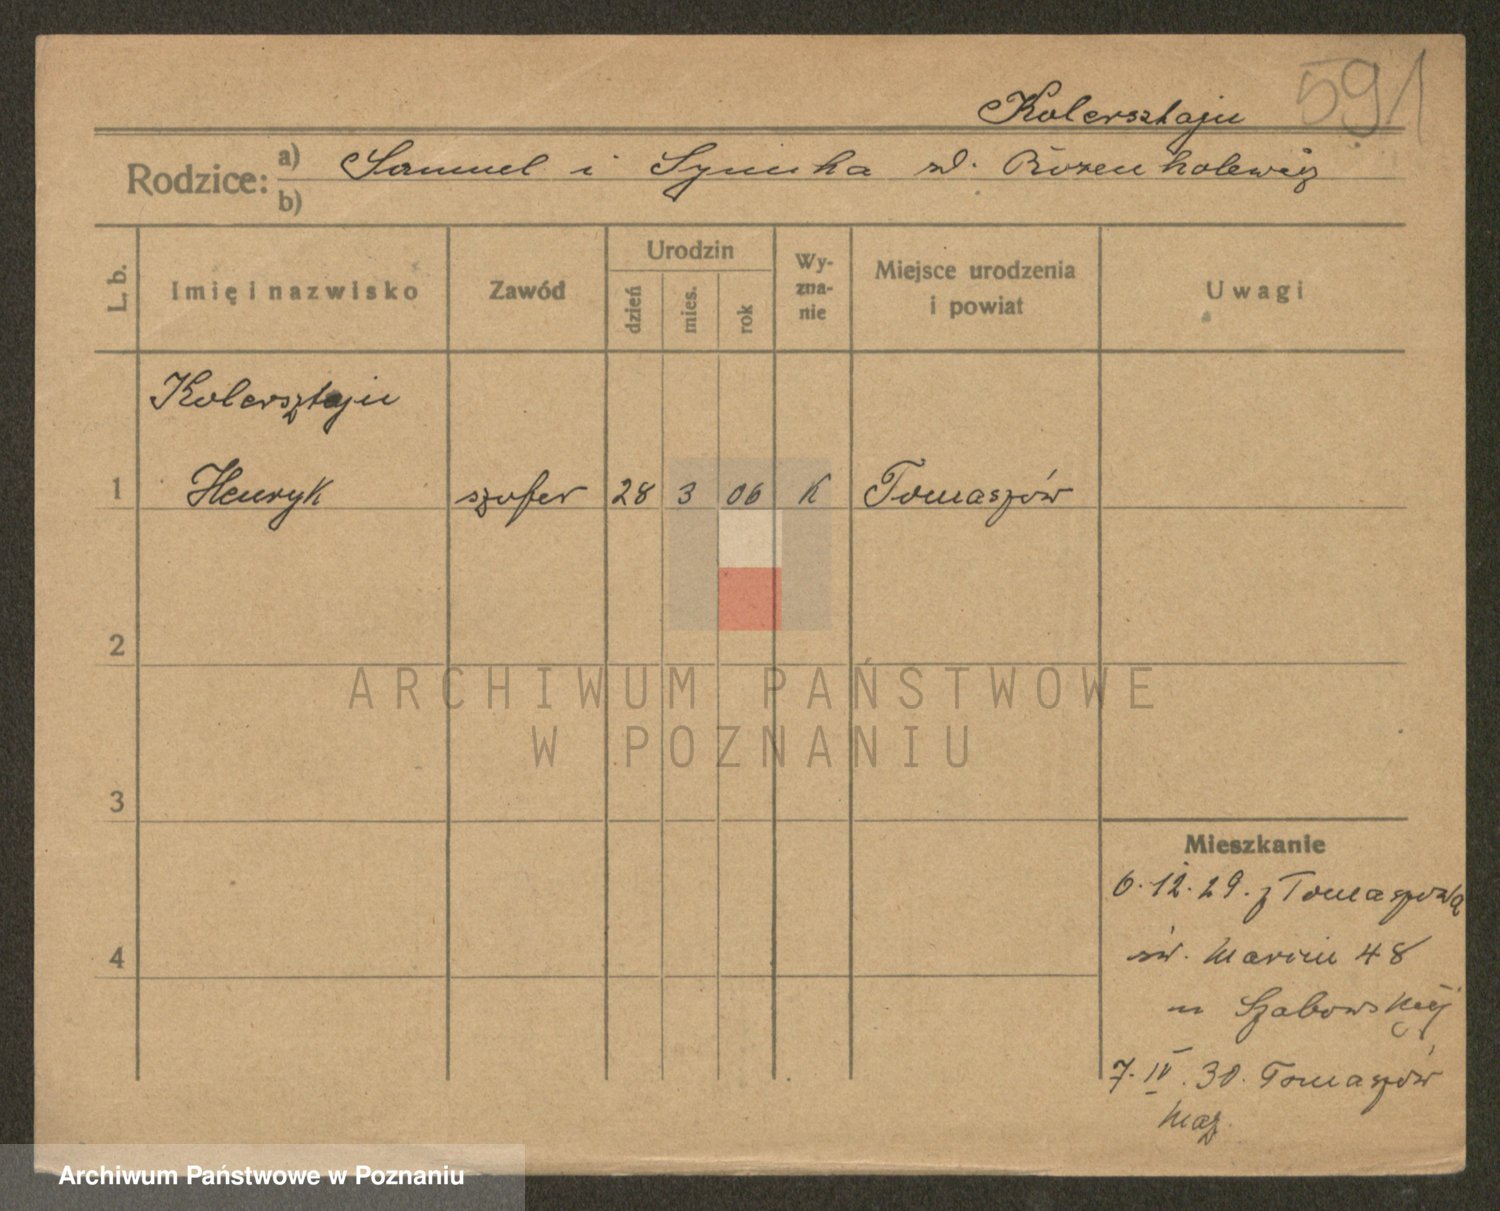 591
Kolersztajn
Rodzice: a) Samuel i Symcha zd. Rozenholewicz
b)
L. b. Imię i nazwisko Zawód Urodzin dzień mies. rok Wyznanie Miejsce urodzenia i powiat Uwagi
Kolersztajn
1 Henryk szofer 28 3 06 K Tomaszów
2
ARCHIWUM PAŃSTWOWE
W POZNANIU
3
Mieszkanie
6.12.29. z Tomaszowa
4
św. Marcin 48
u Szabowskiej
7.IV.30. Tomaszów
Maz.
Archiwum Państwowe w Poznaniu